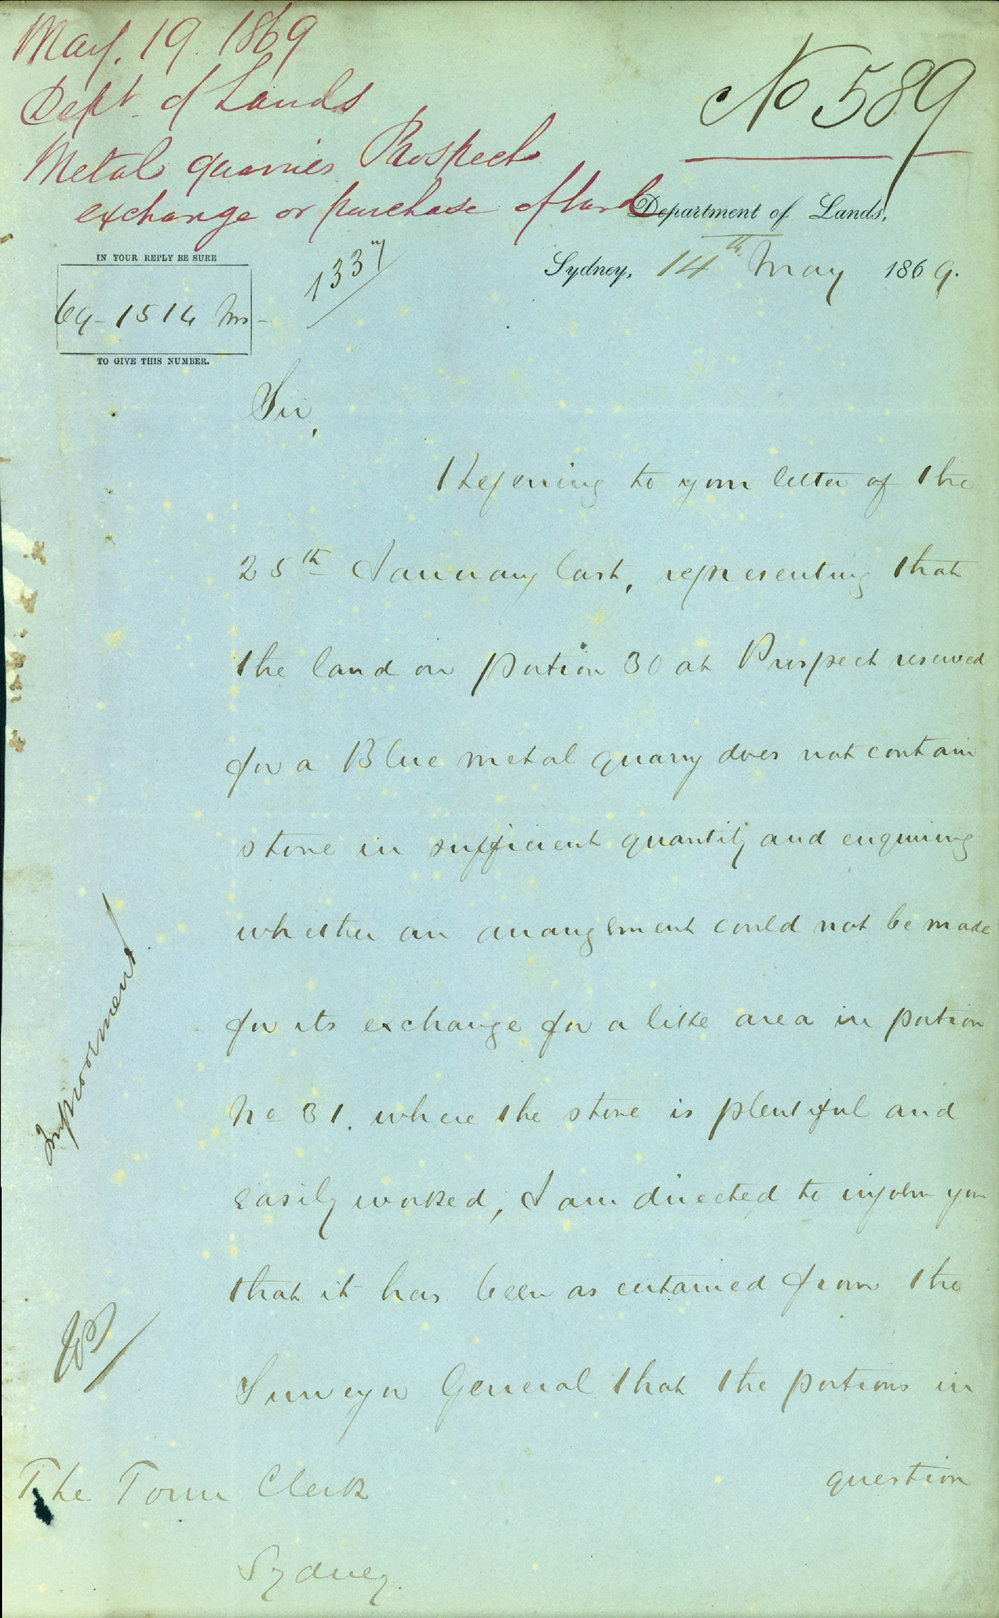 May. 19. 1869
Dept of Lands
Metal quarries Prospect
exchange or purchase of land
No 589
Department of Lands,
Sydney, 14th May 1869.
IN YOUR REPLY BE SURE
69-1514
TO GIVE THIS NUMBER.
1337
Sir,
Referring to your letter of the
25th January last, representing that
the land on portion 30 at Prospect reserved
for a Blue metal quarry does not contain
stone in sufficient quantity and enquiring
whether an arrangement could not be made
for its exchange for a like area in portion
No 31. where the stone is plentiful and
easily worked, I am directed to inform you
that it has been ascertained from the
Surveyor General that the portions in
question
Improvement
The Town Clerk
Sydney.